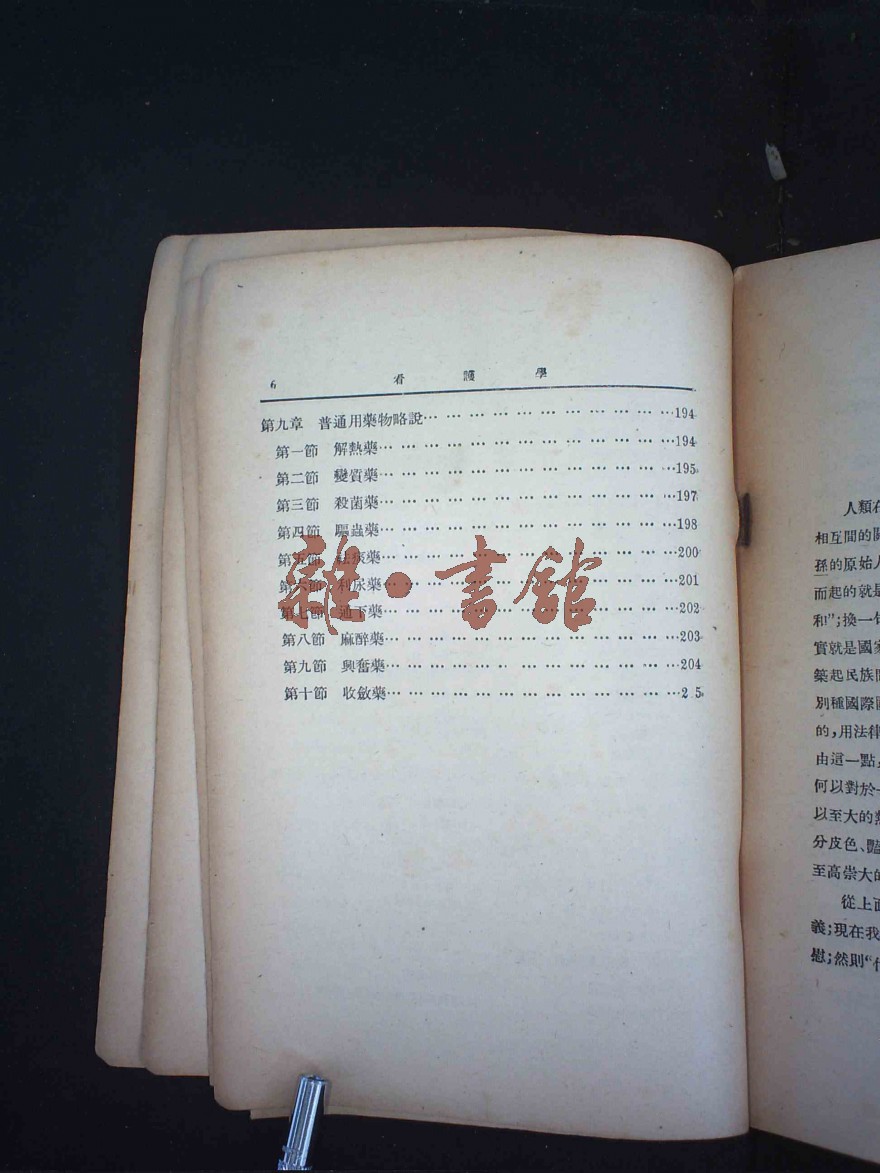 6 看 護 學
第九章 普通用藥物略說… … … … … … … … … … …194
第一節 解熱藥… … … … … … … … … … … … …194
第二節 變質藥… … … … … … … … … … … … …195
第三節 殺菌藥… … … … … … … … … … … … …197
第四節 驅蟲藥… … … … … … … … … … … … …198
第五節 祛痰藥… … … … … … … … … … … … …200
第六節 利尿藥… … … … … … … … … … … … …201
第七節 通下藥… … … … … … … … … … … … …202
第八節 麻醉藥… … … … … … … … … … … … …203
第九節 興奮藥… … … … … … … … … … … … …204
第十節 收斂藥… … … … … … … … … … … … …2 5
雜·書館
人類在
相互間的
孫的原始人
而起的就是
和”;換一
實就是國家
築起民族
別種國際
的,用法律
由這一點,
何以對於
以至大的
分皮色、
至高崇大的
從上面
義;現在我
慰;然則“